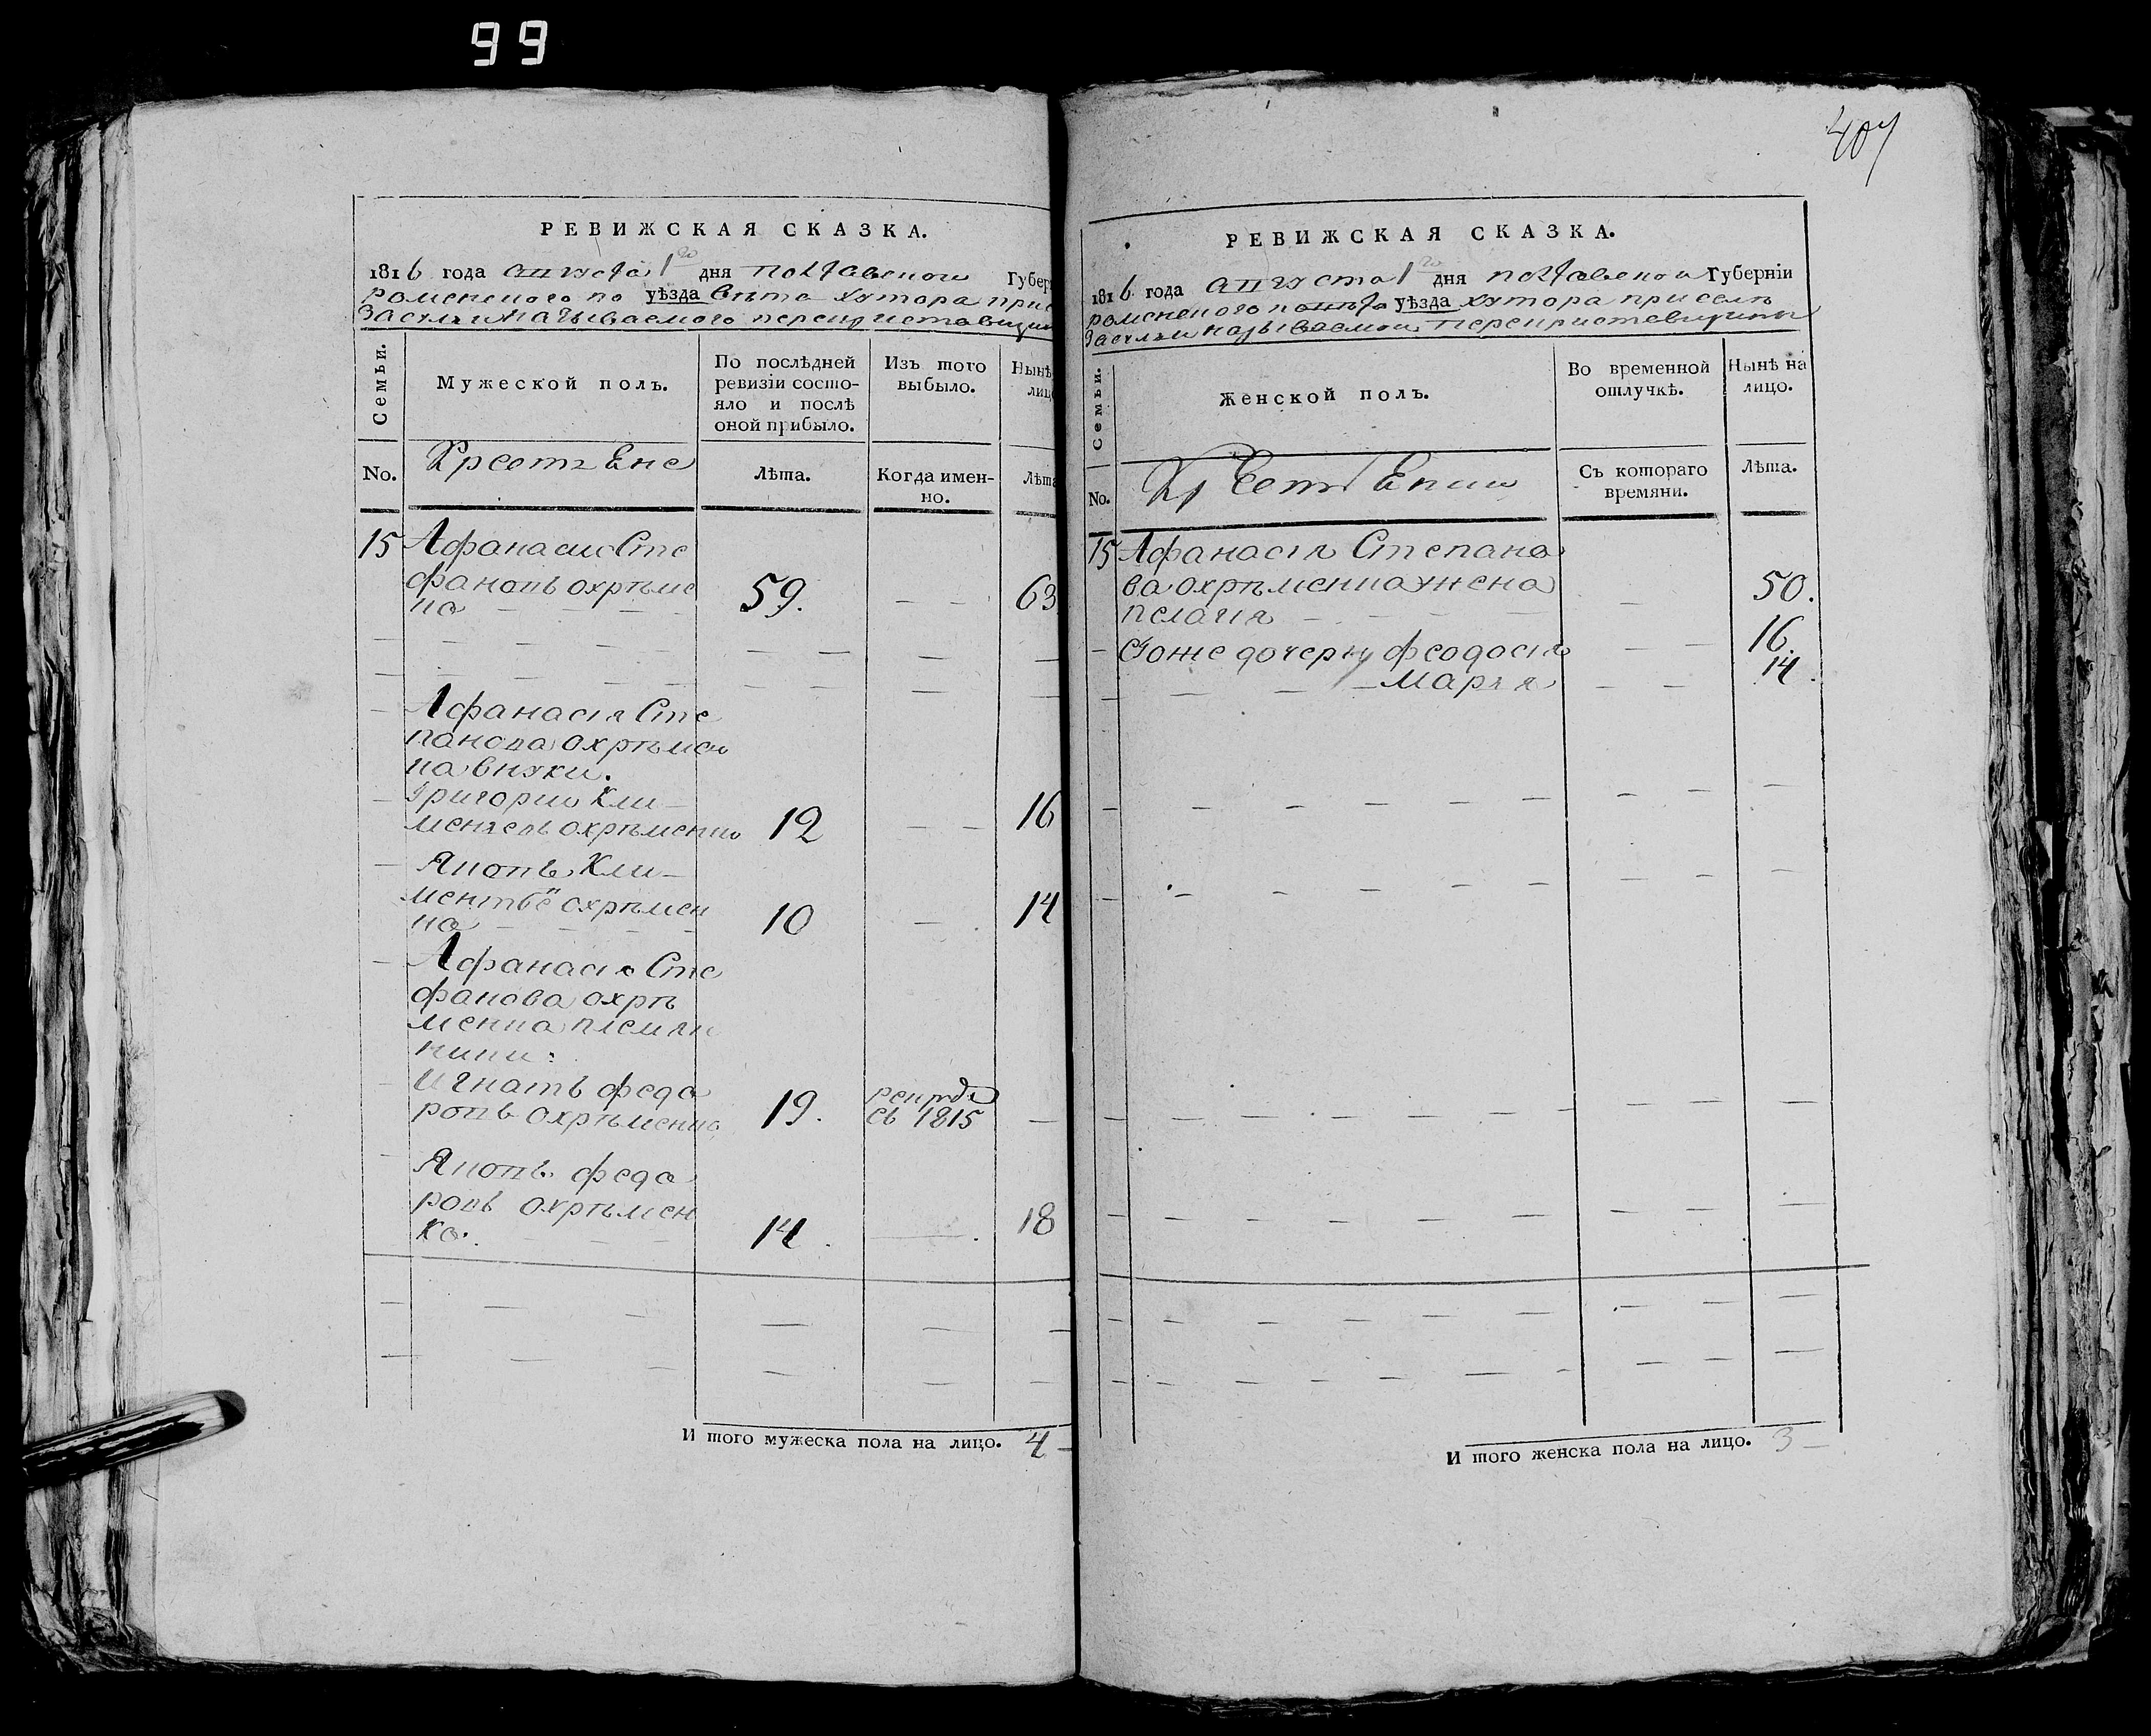 99
407
РЕВИЖСКАЯ СКАЗКА.
1816 года августа 1го дня полтавской Губер
роменского по уѣзда вѣта хутора при се
Засульи называемого перекриставщин
Семьи.
Мужеской полъ.
По послѣдней ревизіи состо-
яло и послѣ
оной прибыло.
Изъ того
выбыло.
Нынѣ
лицо
No.
Крестьяне
Лѣта.
Когда имен-
но.
Лѣта
15 Афанасий Сте
фановъ охрѣме
нко 59. 63
Афанасия Сте
панова охрѣмен
ка внуки.
Григорий Кли
ментьевъ охрѣменко 12 16
Яковъ Кли
ментьевъ охрѣмен
ко 10 14
Афанасия Сте
фанова охрѣ
менка племян
ники:
Игнатъ федо
ровъ охрѣменко 19. рекрут
съ 1815
Яковъ федо
ровъ охрѣмен
ко. 14. 18
И того мужеска пола на лицо. 4
РЕВИЖСКАЯ СКАЗКА.
1816 года августа 1го дня полтавской Губерніи
роменского повѣта уѣзда хутора при селѣ
Засульи называемой
Семьи.
Женской полъ.
Во временной
отлучкѣ.
Нынѣ на
лицо.
No.
Крестьянки
Съ котораго
времяни.
Лѣта.
15 Афанасія Степано
ва охрѣменка жена
пелагия 50.
Его же дочери феодосія 16.
Марья 14.
И того женска пола на лицо. 3